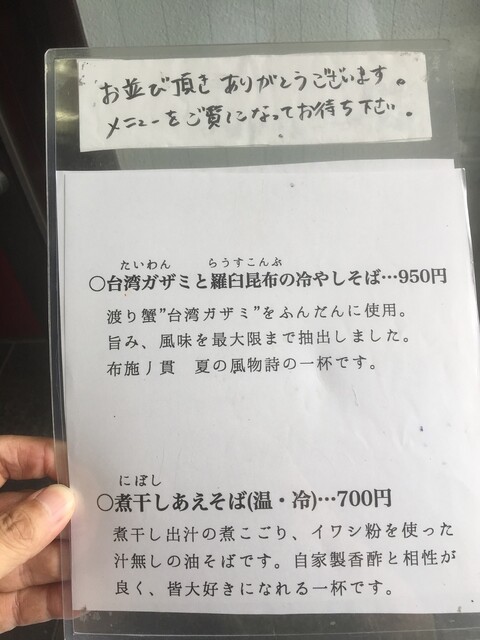 お並び頂きありがとうございます。
メニューをご覧になってお待ち下さい。
たいわん らうすこんぶ
○台湾ガザミと羅臼昆布の冷やしそば…950円
渡り蟹"台湾ガザミ"をふんだんに使用。
旨み、風味を最大限まで抽出しました。
布施丿貫 夏の風物詩の一杯です。
にぼし
○煮干しあえそば(温・冷)…700円
煮干し出汁の煮こごり、イワシ粉を使った
汁無しの油そばです。自家製香酢と相性が
良く、皆大好きになれる一杯です。